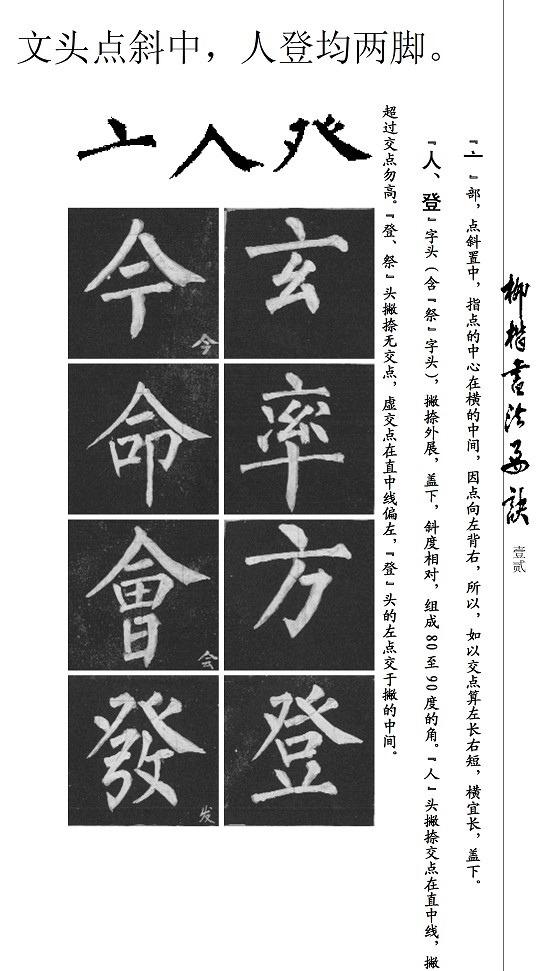 文头点斜中，人登均两脚。
柳楷书法要诀
壹贰
『亠』部，点斜置中，指点的中心在横的中间，因点向左背右，所以，如以交点算左长右短，横宜长，盖下。
『人、登』字头（含『祭』字头），撇捺外展，盖下，斜度相对，组成80至90度的角。『人』头撇捺交点在直中线，撇
超过交点勿高。『登、祭』头撇捺无交点，虚交点在直中线偏左，『登』头的左点交于撇的中间。
亠人癶
玄
率
方
登
今
今
命
會
会
發
发